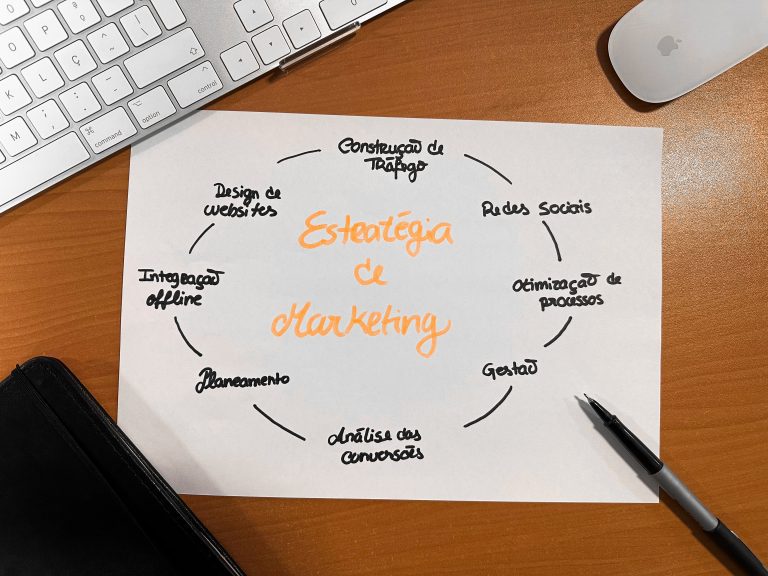 O P
K L Ç
M
control
option
command
Construção de
Tráfego
Redes Sociais
Otimização de
processos
Gestão
Análise das
conversões
Planeamento
Integração
offline
Design de
websites
Estratégia
de
Marketing